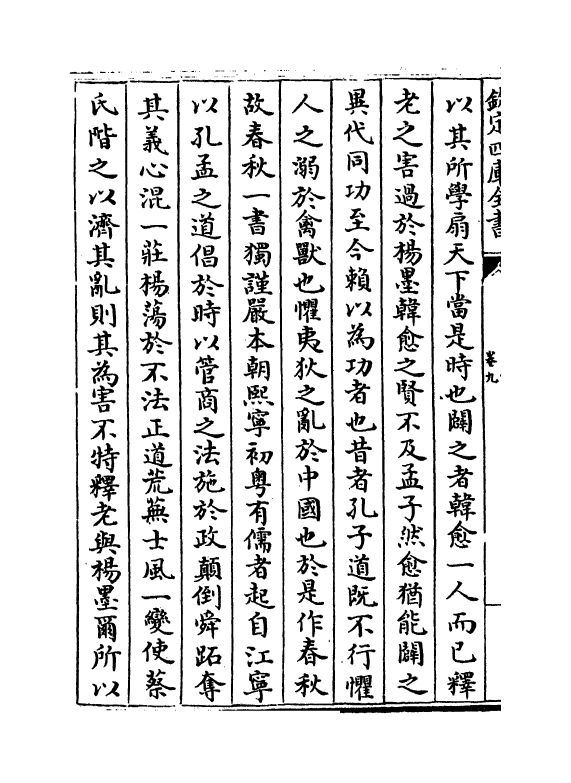 欽定四庫全書
卷九
以其所學扇天下當是時也闢之者韓愈一人而已釋
老之害過於楊墨韓愈之賢不及孟子然愈猶能闢之
異代同功至今賴以為功者也昔者孔子道既不行懼
人之溺於禽獸也懼夷狄之亂於中國也於是作春秋
故春秋一書獨謹嚴本朝熙寧初粤有儒者起自江寧
以孔孟之道倡於時以管商之法施於政顛倒舜跖奪
其義心混一莊楊蕩於不法正道荒蕪士風一變使蔡
氏階之以濟其亂則其為害不特釋老與楊墨爾所以